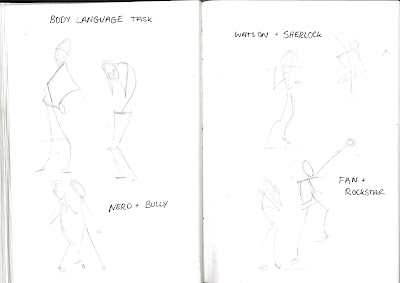 BODY LANGUAGE TASK
NERD + BULLY
WATSON + SHERLOCK
FAN +
ROCKSTAR